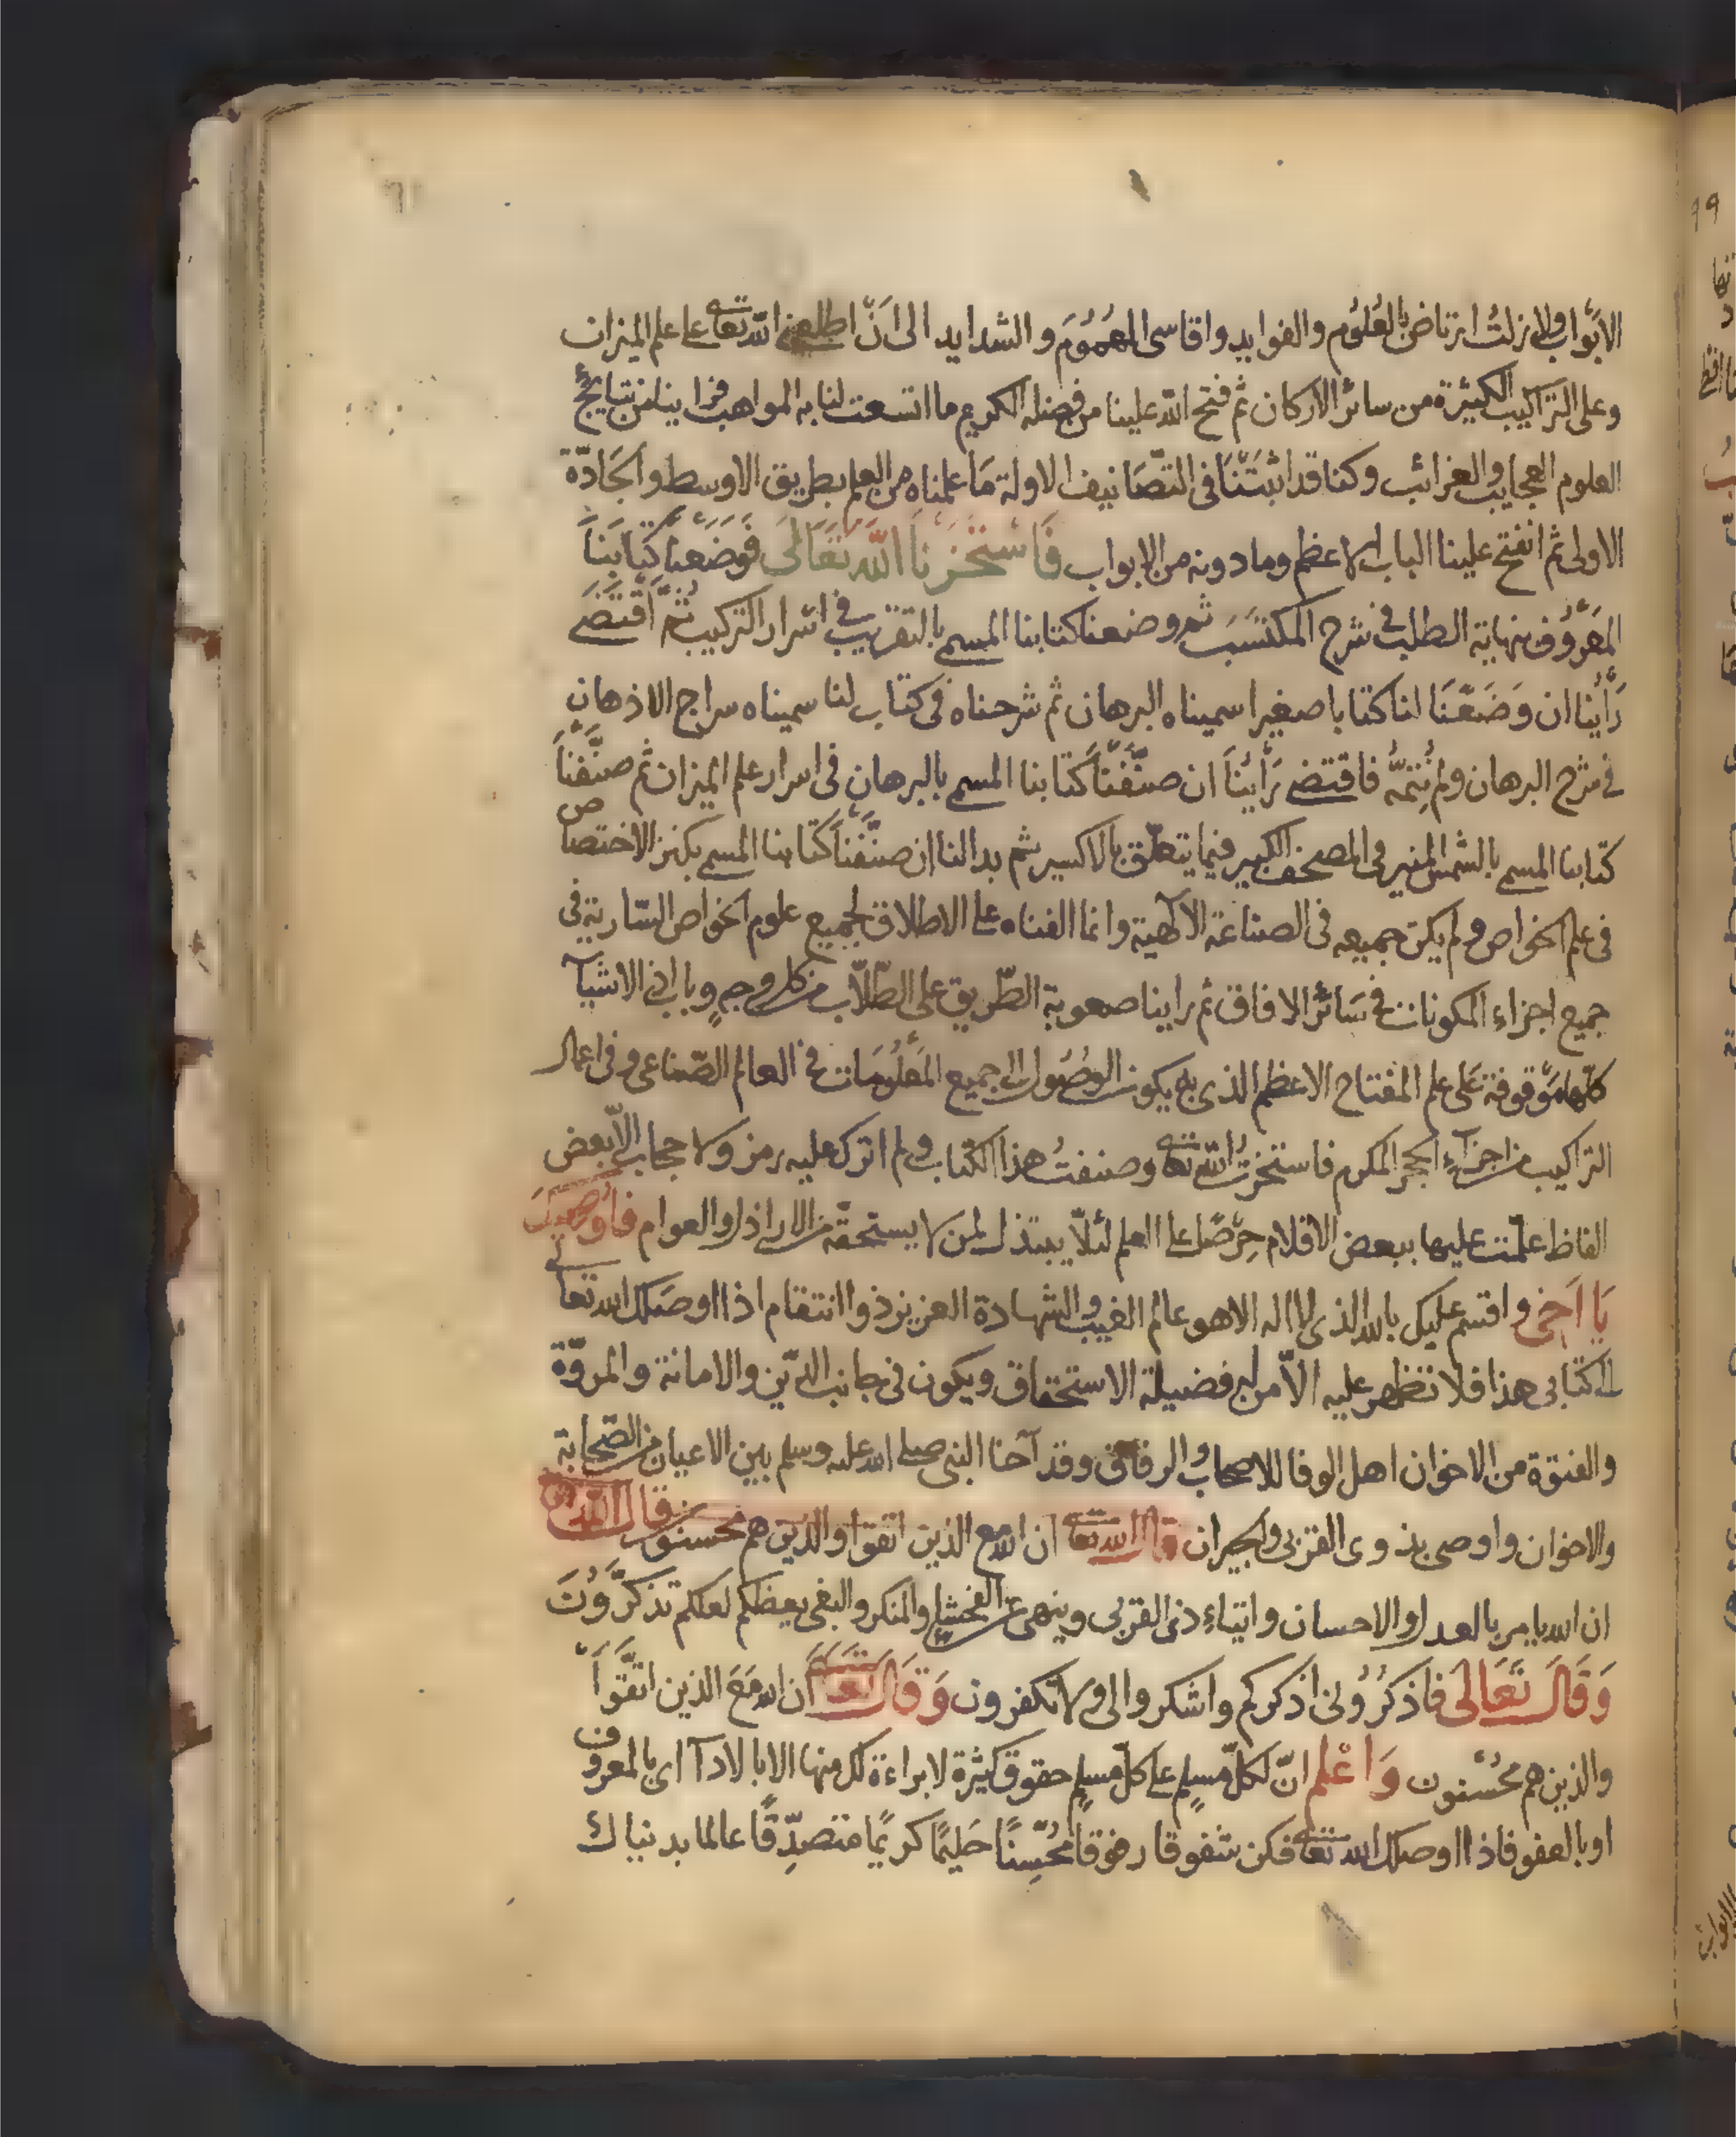 الأبواب ولا زلتُ ارتاض بالعُلوُم والفوايد واقاسى الهمُوُمَ والشدايد الى اَنّ اطلعنى الله تعا على علم الميزان
وعلى التراكيب الكثيرة من سائر الاركان ثم فتح الله علينا من فضله الكريم ما اتسعت لنا به المواهب فزاينا من نتايج
العلوم العجايب والغرائب وكنا قد اثبتَنْنَا فى التصَّانيف الاولة مَا علمناه من العلم بطريق الاوسط والجَادّة
الاولى ثم انفتح علينا الباب الاعظم وما دونه من الابواب فَاسْتَخَرْنَا اللهَ تَعَالَى فَوَضَعْنا كتَابَنَا
المعَرُوُف بنهاية الطلب فى شرح المكتسَبَ ثم وضعنا كتابنا المسمى بالتقريب فى اسْرار التركيب ثمَّ اقْتَضَى
رَأيُنا ان وَضَعْنَا لنا كتابا صغيرا سميناه البرهان ثم شرحناه فى كتاب لنا سميناه سراج الاذهان
فى شرح البرهان ولم نُتِمَّهُ فاقتضى رَأيُنَا ان صنّفْنَا كتابنا المسمى بالبرهان فى اسرار علم الميزان ثم صنَّفنْاَ
كتابنا المسمى بالشمس المنير فى المصحف الكبير فيما يتعلّق بالاكسير ثم بدا لنا ان صنّفْنَا كتابنا المسمى بكنز الاختصاص
فى علم الخواص ولم يكن جميعه فى الصناعة الآلهية وانما الفناه على الاطلاق لجميع علوم الخواص السّارية فى
جميع اجزاء المكونات فى سَائرُ الافاق ثم راينا صعوبة الطّريق على الطّلّاب من كل وجهٍ وباب اذ الاشيآ
كلّها مَوْقوفة عَلى علم المفتاح الاعظم الذى به يكون الوصُوُل الى جميع المَعْلُوُمَات فى العالم الصّناعى وفى اعمال
التراكيب من اجزآء الحجر المكرم فاستخرتُ الله تعا وصنفتُ هذا الكتاب ولم اترك عليه رمز ولا حجاب الّا بعض
الفاظ علّمت عليها ببعض الاقلام حِرْصًا على العلم لئلّا يبتذل لمن لا يستحقّه من الاراذل والعوام فاوصِيكَ
يَا اَخِى واقسم عليك بالله الذى لا اله الا هو عالم الغيب والشهادة العزيز ذو الانتقام اذا اوصَلك الله تعالى
الى كتابى هذا فلا تظهر عليه الاّ من له فضيلة الاستحقاق ويكون فى جانب الدّين والامانة والمروّة
والفتوّة من الاخوان اهل الوفا للاصحاب والرفاق وقد آخا النبى صلى الله عليه وسلم بين الاعيان من الصّحابة
والاخوان واوصى بذوى القربى والجيران قال الله تعا ان الله مع الذين اتقوا والذين هم محسنون قال الله تعا
ان الله يامر بالعدل والاحسان وايتاءِ ذى القربى وينهى عن الفحشاء والمنكر والبغى يعظكم لعلكم تذكرّوُنَ
وَقَالَ تَعَالَى فاذكرُوُنى اذكركم واشكروا لى ولا تكفرون وَقَالَ تعَا ان الله مَعَ الذين اتقَّوَاْ
والذين هم محُسْنون وَاعْلم انّ لكلّ مسلِمٍ على كلّ مسلِمٍ حقوق كثيرة لا براءة لك منها الا بالادآ اى بالمعروف
او بالعفو فاذا اوصلك الله تعا فكن شفوقا رفوقا محُسِّنًا حَليمًا كريمًا متصدِّقًا عالما بدنياك